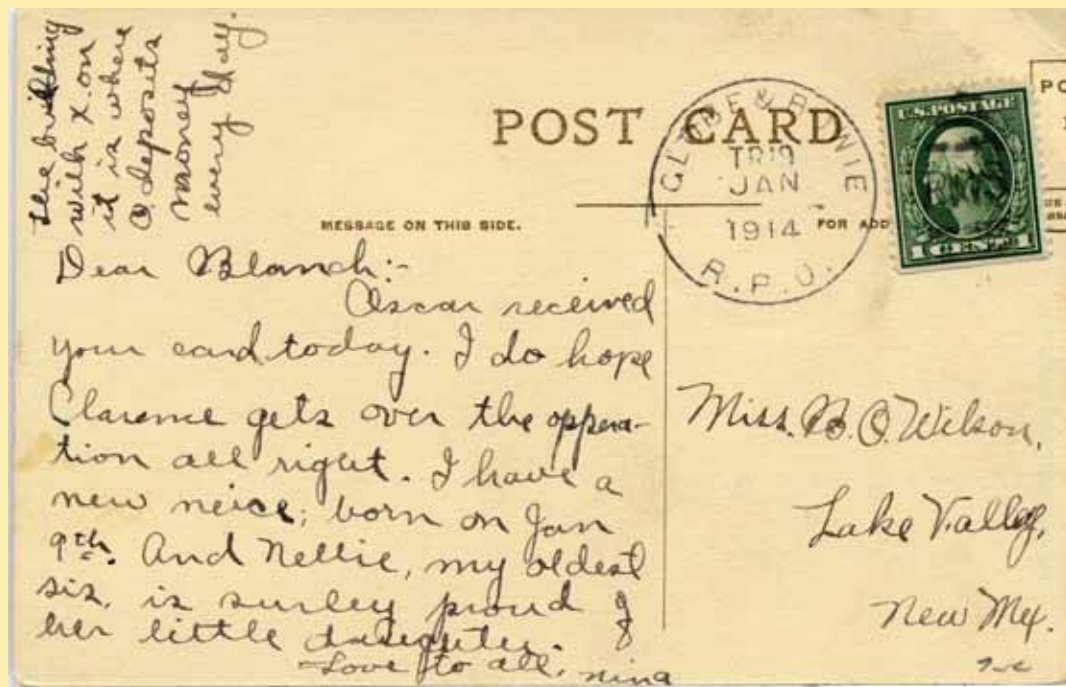 The building
with X. on
it is where
O. deposits
money
every day.
POST CARD
GLOBE & BOWIE
TR19
JAN
1914
R.P.O.
U.S. POSTAGE
1 CENT 1
MESSAGE ON THIS SIDE.
FOR ADD
Dear Blanch:-
Oscar received
your card today. I do hope
Clarence gets over the oppera-
tion all right. I have a
new neice; born on Jan
9th. And Nellie, my oldest
sis. is surley proud of
her little daughter.
Love to all, Nina
Miss. B. O. Wilson,
Lake Valley,
New Mex.